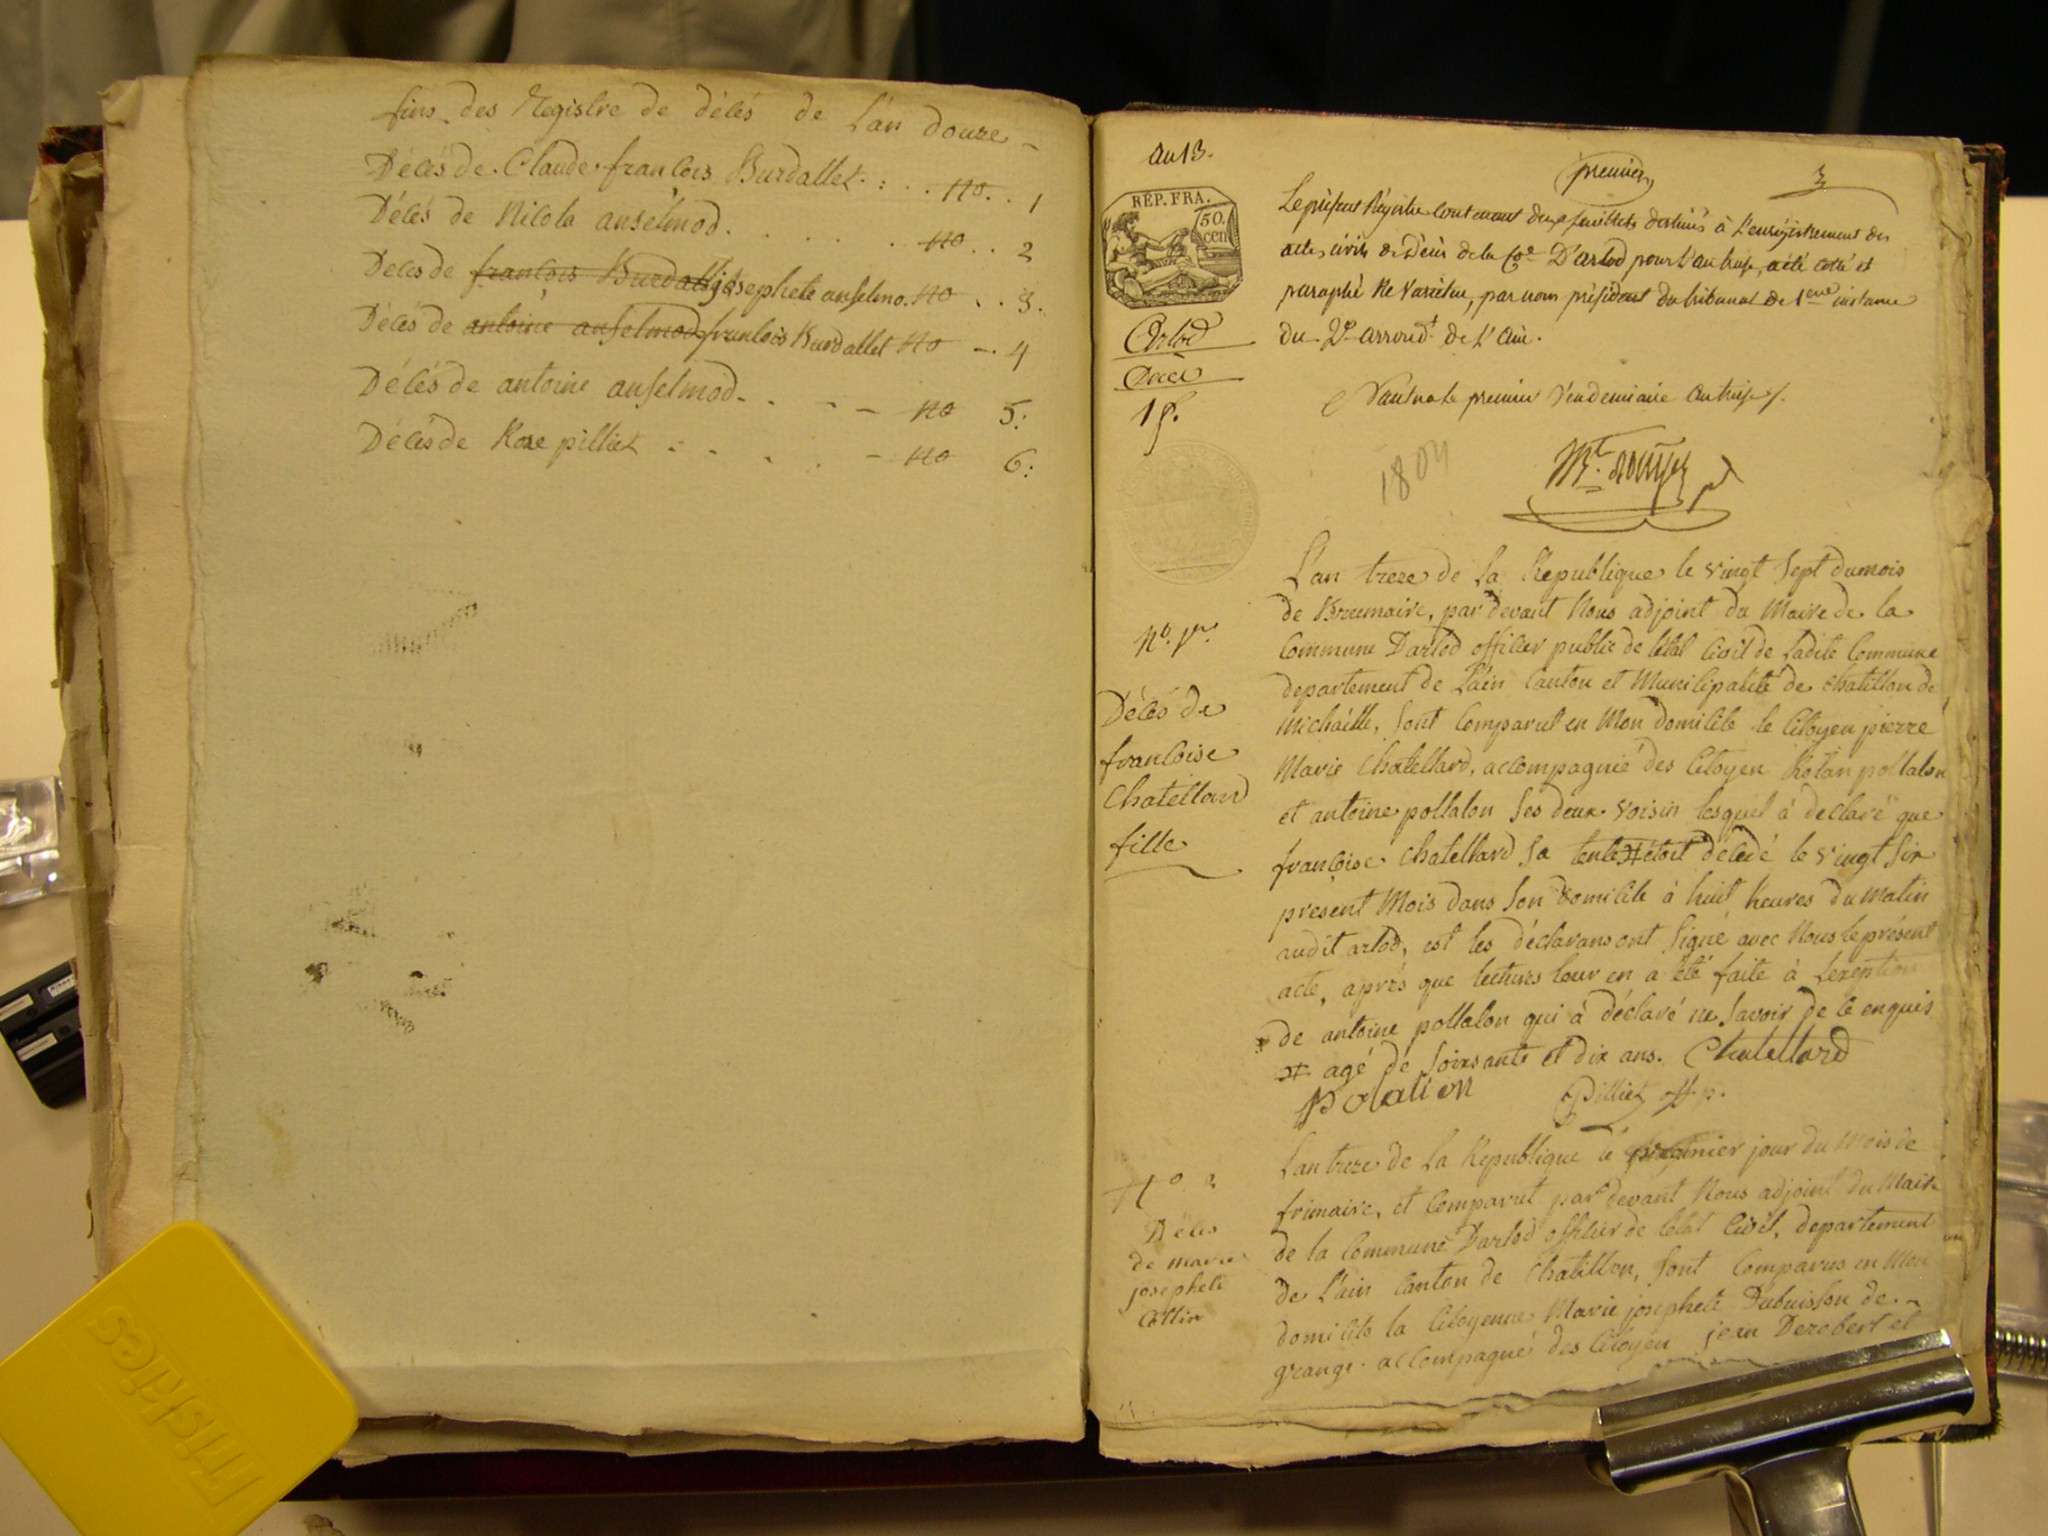 fins des Registre de délés de l'an douze
Délés de Claude francois Burdallet no 1
Délés de Nicola anselmod no 2
Délés de francois Burdallet josephete anselmo. no 3.
Délés de antoine anselmod francois Burdallet no 4
Délés de antoine anselmod no 5:
Délés de Roze pilliet no 6:
an 13.
premier
3
RÉP. FRA.
50.
cen
Le présent Régistre contenant deux feuillets destinés à l'enrégistrement des
actes civils de Décés de la Cne D'arlod pour l'an treize, a été cotté et
paraphé Ne varietur, par nous président du tribunal de 1ere instance
du 2e arrond.t de L'ain.
Arlod
Décès
Nantua le premier Vendemiaire an treize
1804
L'an treze de La Republique le vingt sept du mois
de Brumaire, par devant Nous adjoint du Maire de la
Commune Darlod officier public de létat civil de Ladite Commune
departement de L'ain Canton et Municipalité de chatillon de
Michaille, sont Comparut en Mon domicile le Citoyen pierre
Marie Chatellard, accompagnié des Citoyen Rolan pollalon
et antoine pollalon ses deux voisin lesquel à declaré que
françoise chatellard sa tente # étoit décédé le vingt six
présent Mois dans son domicile à huit heures du Matin
audit arlod, est les déclarans ont signé avec Nous le présent
acte, aprés que lectures leur en a été faite à Lexeption
de antoine pollalon qui à déclaré ne savoir de ce enquis
# agé de soixsante et dix ans. Chatellard
Polalion Pilliet off. p.
No. 1er.
Délés de
francoise
Chatellard
fille
Lan treze de La Republique le premier jour du Mois de
frimaire, et Comparut par devant Nous adjoint du Maire
de la Commune Darlod officier de létat Civil, departement
de L'ain Canton de Chatillon, sont Comparus en Mon
domicile la Citoyenne Marie josephete Dubuisson de
grange. accompagné des Citoyen jean Derobert et
No 2
Délés
de marie
josephete
Collin
triskides